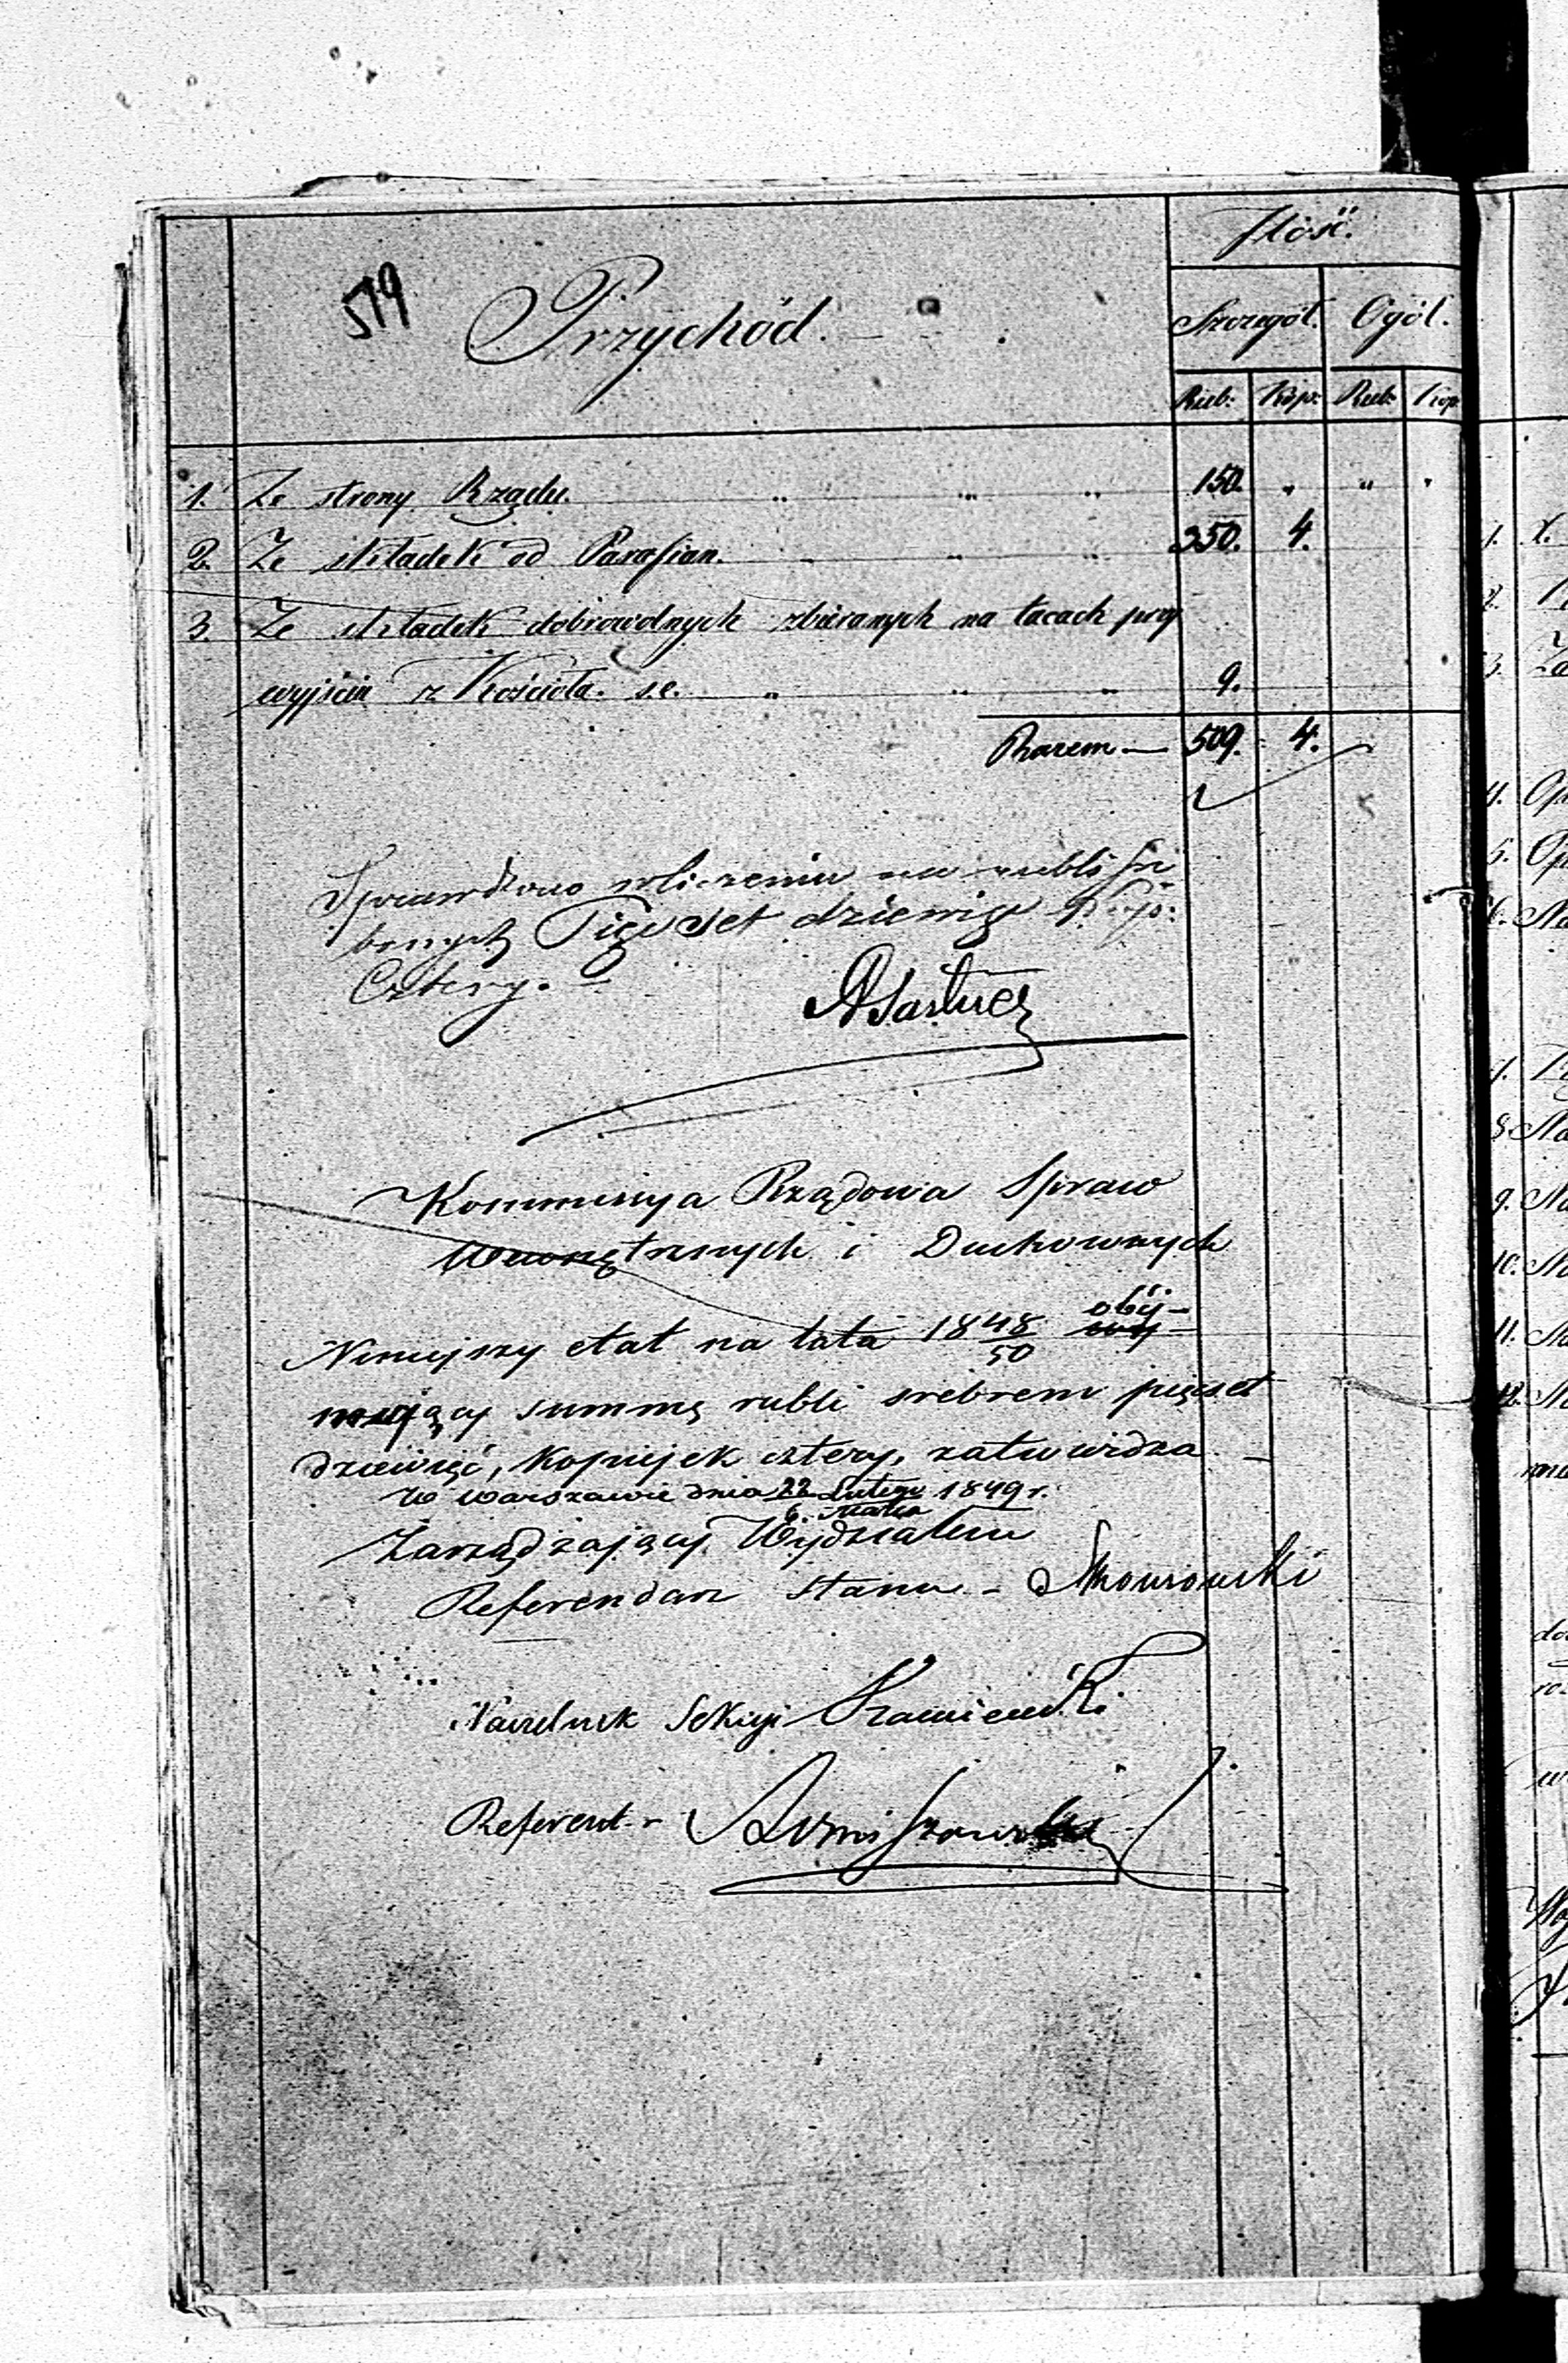 Ilość.
519
Przychód.
Szczegół. Ogół.
Rub: Kop: Rub: Kop:
1. Ze strony Rządu. " " " 150. " " "
2. Ze składek od Parafian. " " 350. 4.
3. Ze składek dobrowolnych zbieranych na tacach przy
wyjściu z Kościoła. s.e. " " " 9.
Razem — 509. 4.
Sprawdzono w liczeniu na rubli sre
brnych Pięćset dziewięć Kop:
Cztery.
Kommissya Rządowa Spraw
Wewnętrznych i Duchownych
Niniejszy etat na lata 1848/50 obej-
mujący summę rubli srebrem pięćset
dziewięć, kopiejek cztery, zatwierdza
W Warszawie dnia 22 Lutego / 6. Marca 1849 r.
Zarządzający Wydziałem
Referendarz Stanu -
Naczelnik Sekcyi
Referent -